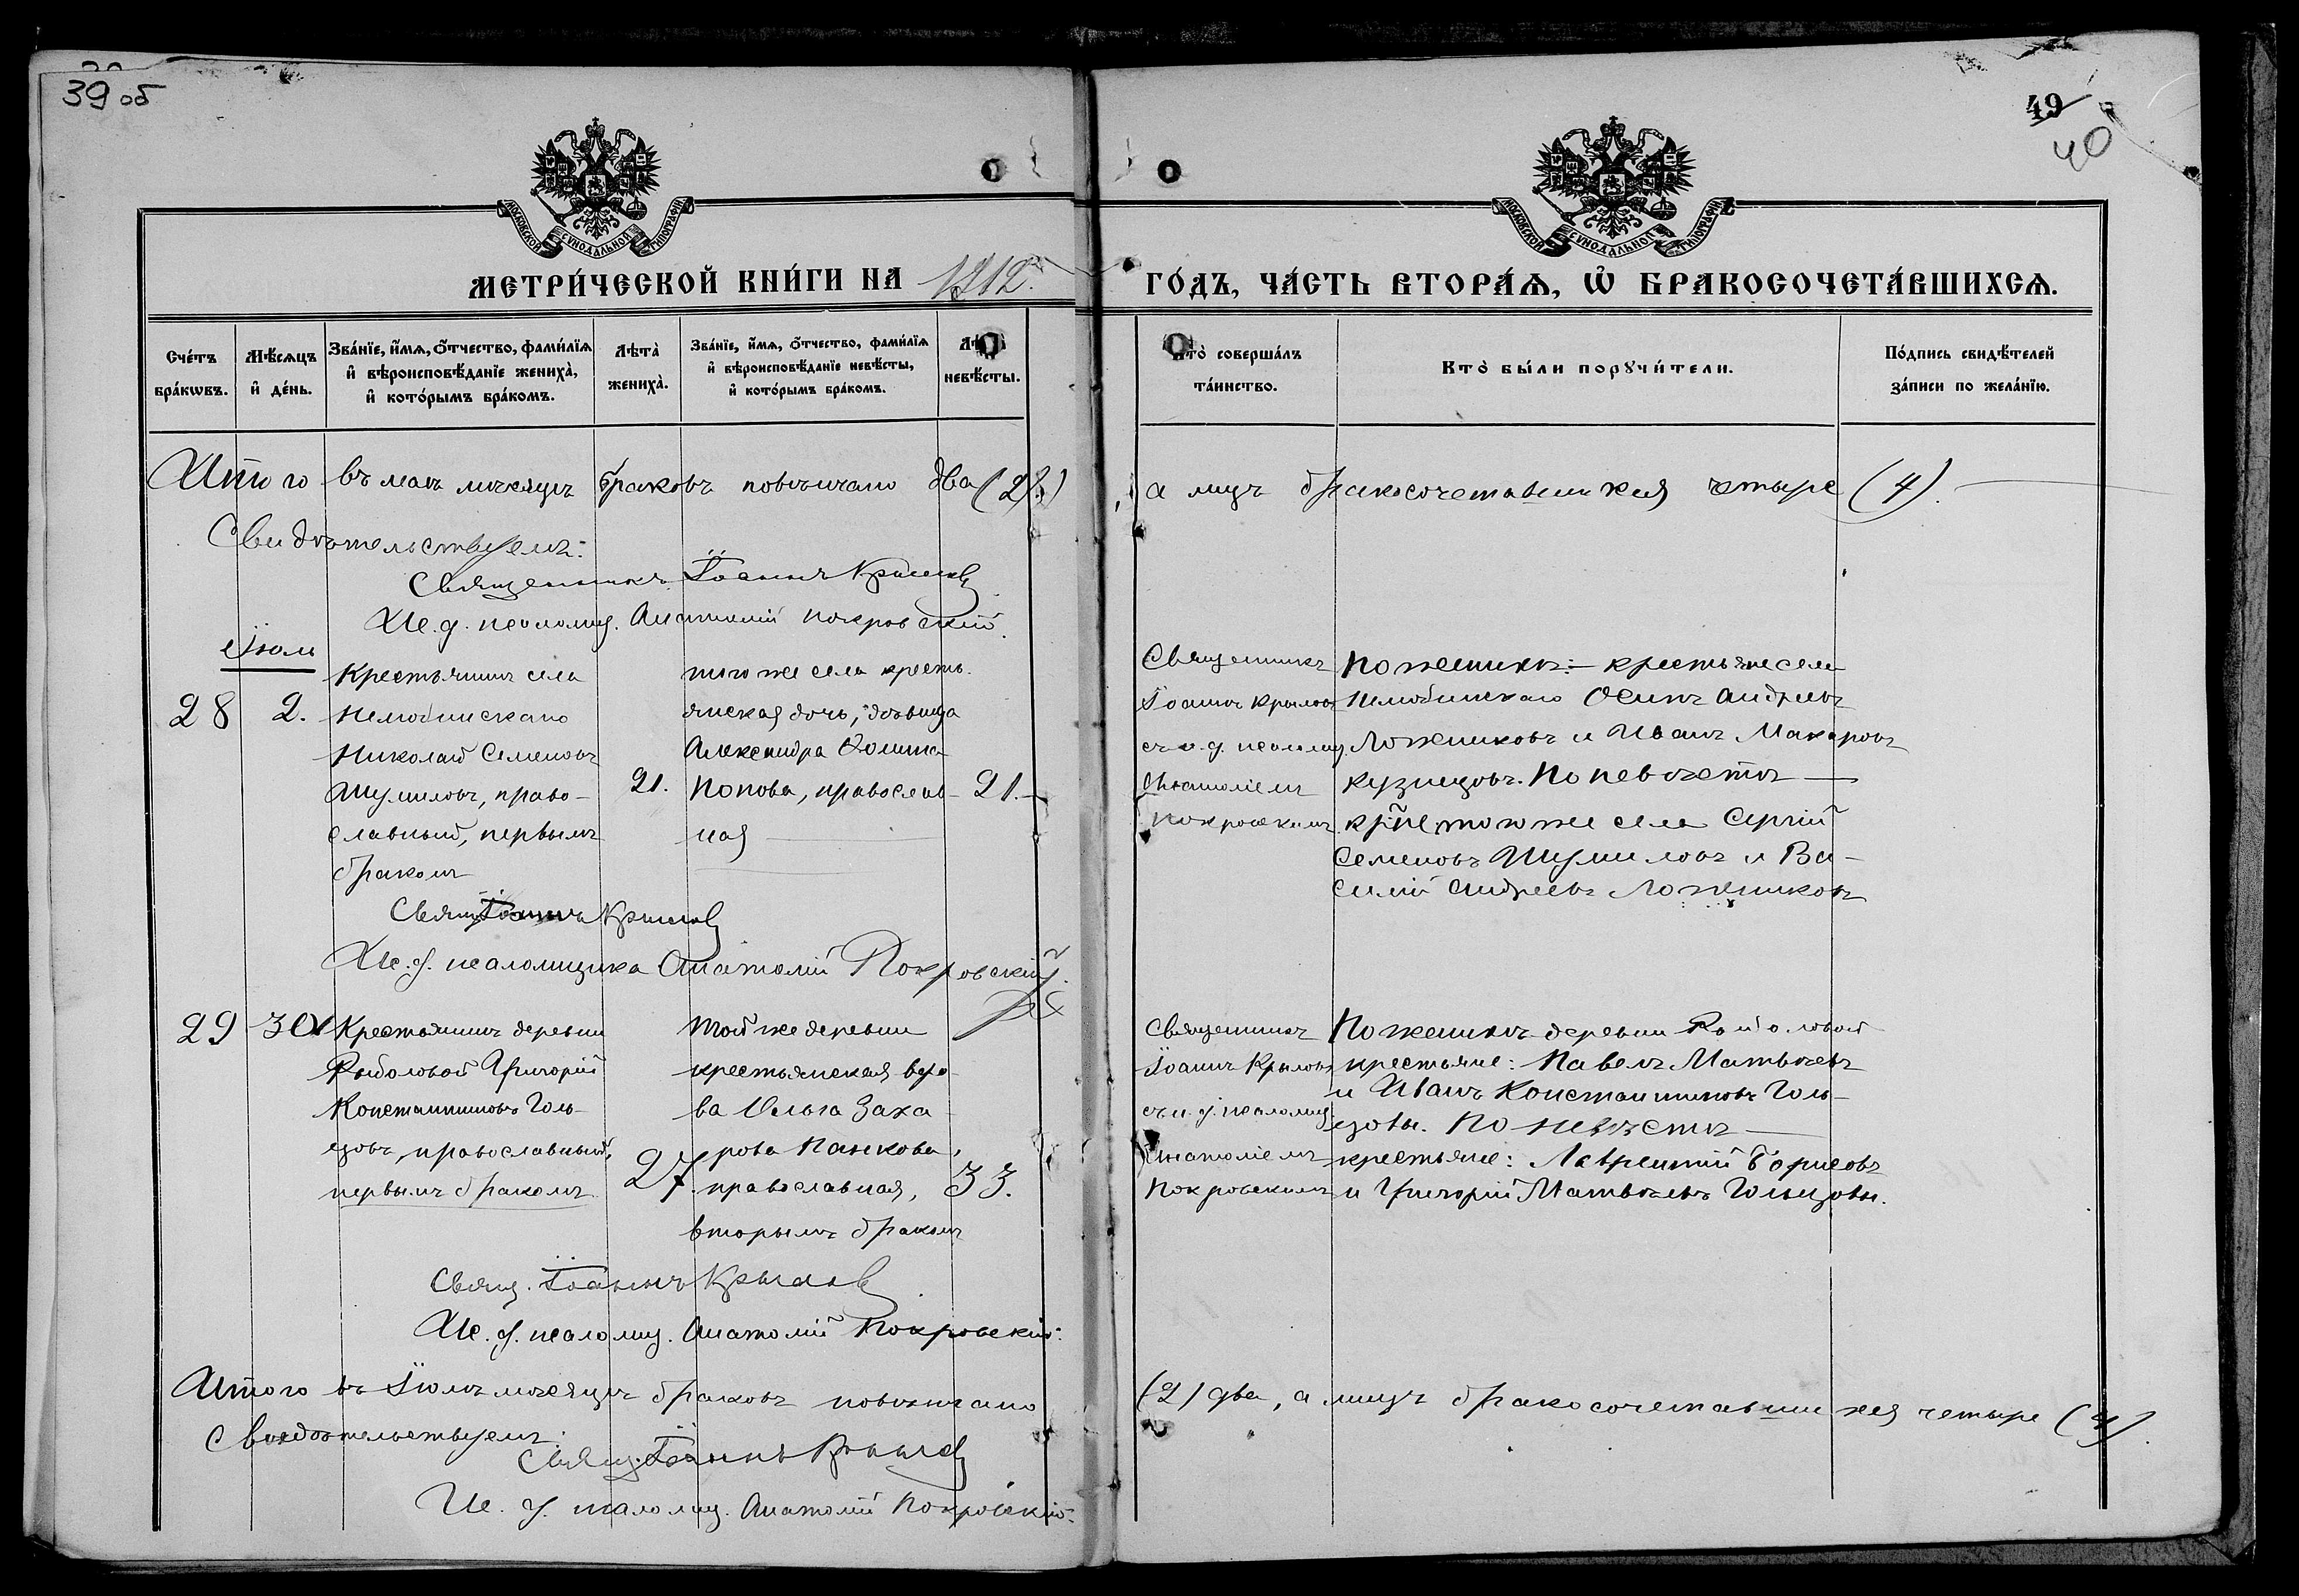 39 об
49
40
МОСКОВСКОЙ СѴНОДАЛЬНОЙ ТИПОГРАФІИ
МОСКОВСКОЙ СѴНОДАЛЬНОЙ ТИПОГРАФІИ
МЕТРИ́ЧЕСКОЙ КНИ́ГИ НА 1912 г.
ГО́ДЪ, ЧА́СТЬ ВТОРА́Ѧ, Ѽ БРАКОСОЧЕТА́ВШИХСѦ.
Сче́тъ бра́кѡвъ.
Мѣ́сяцъ и҆ де́нь.
Зва́нїе, и҆́мѧ, ѻ҆́тчество, фами́лїѧ и҆ вѣроисповѣ́данїе жениха̀, и҆ кото́рымъ бра́комъ.
Лѣта̀ жениха̀.
Зва́нїе, и҆́мѧ, ѻ҆́тчество, фами́лїѧ и҆ вѣроисповѣ́данїе невѣ́сты, и҆ кото́рымъ бра́комъ.
Лѣта̀ невѣ́сты.
Кто̀ соверша́лъ та́инство.
Кто̀ бы́ли порꙋчи́тели.
По́дпись свидѣ́телей за́писи по жела́нїю.
Итого въ маѣ мѣсяцѣ браковъ повѣнчано два (2)
а лицъ бракосочетавшихся четыре (4).
Свидѣтельствуемъ:
Священникъ Іоаннъ Крыловъ
Ис. д. псаломщ. Анатолій Покровскій.
Іюль
28
2.
Крестьянинъ села
Нелюбинскаго
Николай Семеновъ
Шумиловъ, право-
славный, первымъ
бракомъ
21.
того же села кресть-
янская дочь, дѣвица
Александра Фомина
Попова, православ-
ная
21.
Священникъ
Іоаннъ Крыловъ
съ и. д. псаломщ.
Анатоліемъ
Покровскимъ
По женихѣ: крестьяне села
Нелюбинскаго Осипъ Андреевъ
Ложниковъ и Иванъ Макаровъ
Кузнецовъ. По невѣстѣ —
кр̃не, того же села Сергій
Семеновъ Шумиловъ и Ва-
силій Андреевъ Ложниковъ
Свящ. Іоаннъ Крыловъ
Ис. д. псаломщика Анатолій Покровскій.
29
30
Крестьянинъ деревни
Рыболовой Григорій
Константиновъ Голь-
цовъ, православный,
первымъ бракомъ.
27.
Той же деревни
крестьянская вдо-
ва Ольга Заха-
рова Панкова,
православная,
вторымъ бракомъ
33.
Священникъ
Іоаннъ Крыловъ
съ и. д. псаломщ.
Анатоліемъ
Покровскимъ
По женихѣ деревни Рыболовой
крестьяне: Павелъ Матвѣевъ
и Иванъ Константиновъ Голь-
цовы. По невѣстѣ —
крестьяне: Лаврентій Борисовъ
и Григорій Матвѣевъ Гольцовы.
Свящ. Іоаннъ Крыловъ
Ис. д. псаломщ. Анатолій Покровскій.
Итого въ Іюлѣ мѣсяцѣ браковъ повѣнчано
(2) два, а лицъ бракосочетавшихся четыре (4).
Свидѣтельствуемъ:
Свящ. Іоаннъ Крыловъ
Ис. д. псаломщ. Анатолій Покровскій.